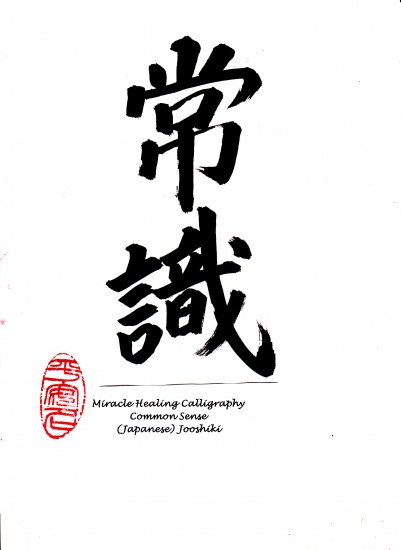 常
識
Miracle Healing Calligraphy
Common Sense
(Japanese) Jooshiki